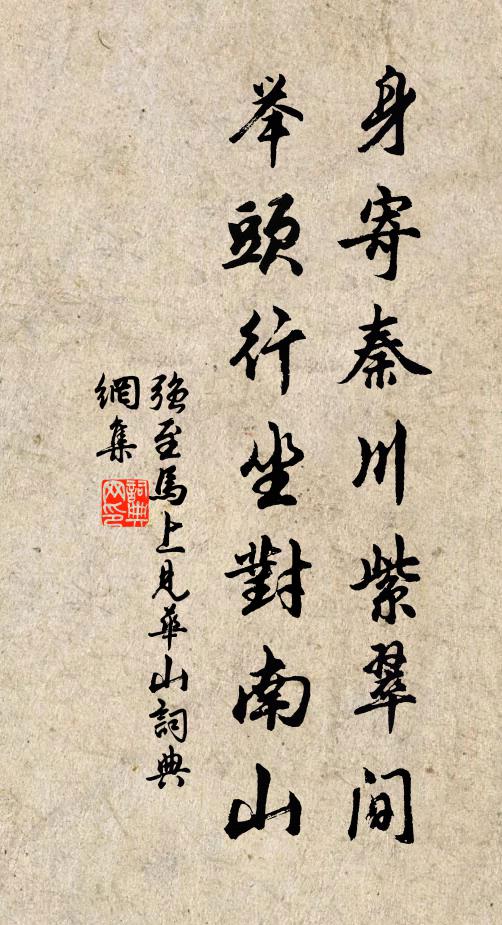 身寄秦川紫翠间
举頭行坐對南山
強至馬上見華山詞典
網集
詞典
网印